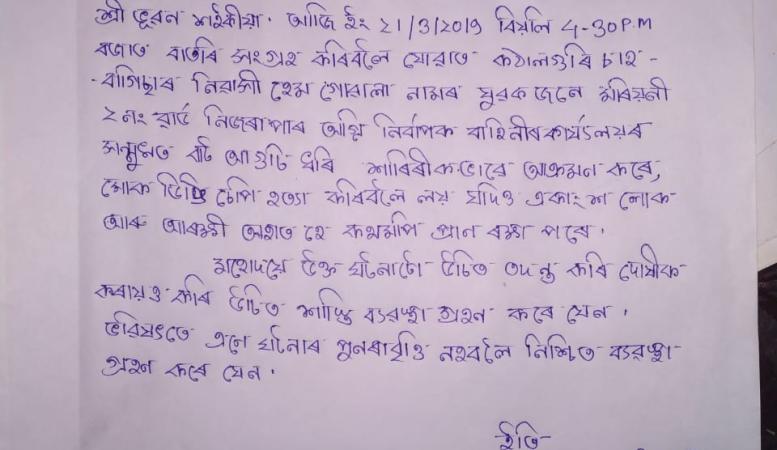 শ্ৰী ভূৱন শইকীয়া. আজি ইং 21/3/2019 বিয়লি 4-30P.M
বজাত বাতৰি সংগ্ৰহ কৰিবলৈ যোৱাত কঠালগুৰি চাহ-
-বাগিছাৰ নিৱাসী হেম গোৱালা নামৰ যুৱক জনে মৰিয়নী
2 নং ৱাৰ্ড নিজৰাপাৰ অগ্নি নিৰ্বাপক বাহিনীৰ কাৰ্যলয়ৰ
সন্মুখত বাট আগুচি ধৰি শাৰিৰীক ভাৱে আক্ৰমন কৰে,
মোক ডিঙি চেপি হত্যা কৰিবলৈ লয় যদিও একাংশ লোক
আৰু আৰক্ষী অহাত হে কথমপি প্ৰান ৰক্ষা পৰে.
মহোদয়ে উক্ত ঘটনাটো উচিত তদন্ত কৰি দোষীক
কৰায়ত্ত কৰি উচিত শাস্তি ব্যৱস্থা গ্ৰহন কৰে যেন.
ভৱিষ্যতে এনে ঘটনাৰ পুনৰাবৃত্তি নহবলৈ নিশ্চিত ব্যৱস্থা
গ্ৰহন কৰে যেন.
ইতি